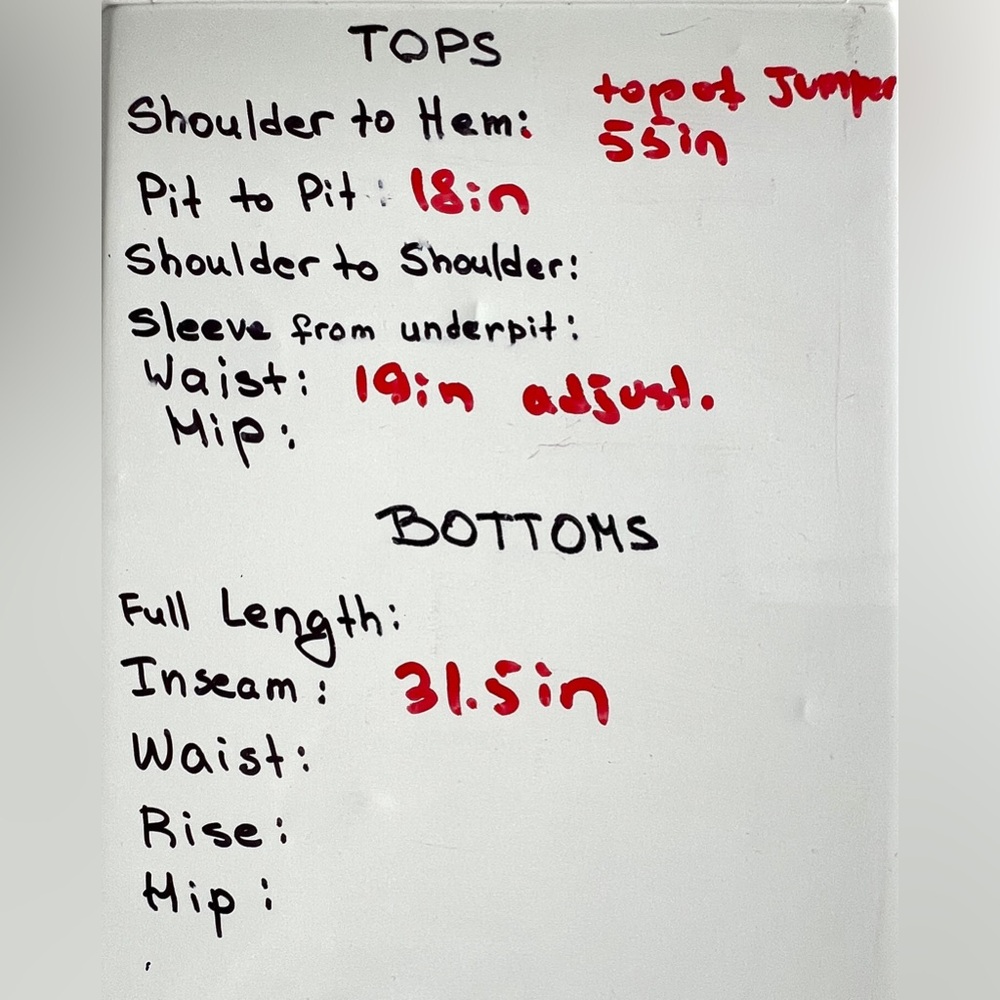 TOPS
top of Jumper
Shoulder to Hem: 55in
Pit to Pit: 18in
Shoulder to Shoulder:
Sleeve from underpit:
Waist: 19in adjust.
Hip:
BOTTOMS
Full Length:
Inseam: 31.5in
Waist:
Rise:
Hip: